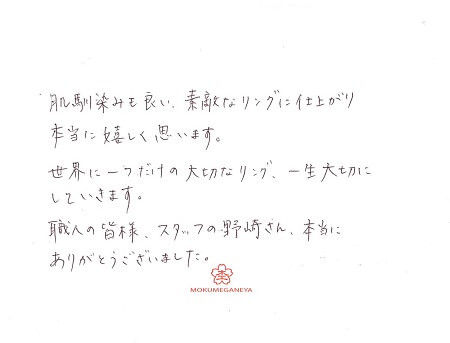 肌馴染みも良い、素敵なリングに仕上がり
本当に嬉しく思います。
世界に一つだけの大切なリング、一生大切に
していきます。
職人の皆様、スタッフの野崎さん、本当に
ありがとうございました。
MOKUMEGANEYA